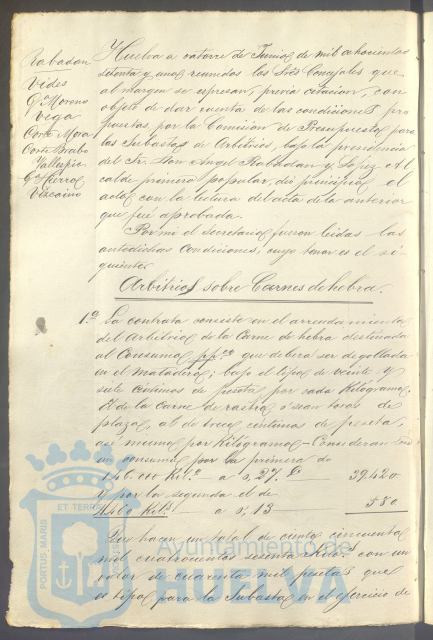 Rabadan
Vides
Gª Moreno
Vega
Corte Mora
Corte Brabo
Vallespin
Gª Hierro
Vizcaino
Huelva a catorce de Junio de mil ochocientos
setenta y uno, reunidos los Sres Concejales que
al margen se espresan, previa citacion, con
objeto de dar cuenta de las condiciones pro
puestas, por la Comision de Presupuestos para
las Subastas de Arbitrios, bajo la presidencia
del Sr. Don Angel Rabadan y Lopez Al
calde primero popular, dió principio el
acto con la lectura del acta de la anterior
que fué aprobada.
Por mi el Secretario fueron leidas las
antedichas Condiciones, cuyo tenor es el si
guiente
Arbitrios sobre Carnes de hebra.
1.ª La contrata consiste en el arrendamiento
del Arbitrio de la Carne de hebra destinada
al Consumo que deberá ser degollada
en el matadero; bajo el tipo de veinte y
siete centimos de peseta por cada Kilógramo;
y la Carne de toros de
plaza, al de trece centimos de peseta,
asi mismo por Kilógramo
en consumo por la primera de
146.000 Kil.s a 0,27 39.420
Y por la segunda el de
4460 Kil.s a 0,13 580
Que hacen un total de ciento cincuenta
mil cuatrocientos sesenta Kil.s con un
valor de cuarenta mil pesetas que
es tipo para la Subasta en el ejercicio de
PORTUS MARIS
ET TERRÆ
Ayuntamiento de
HUELVA